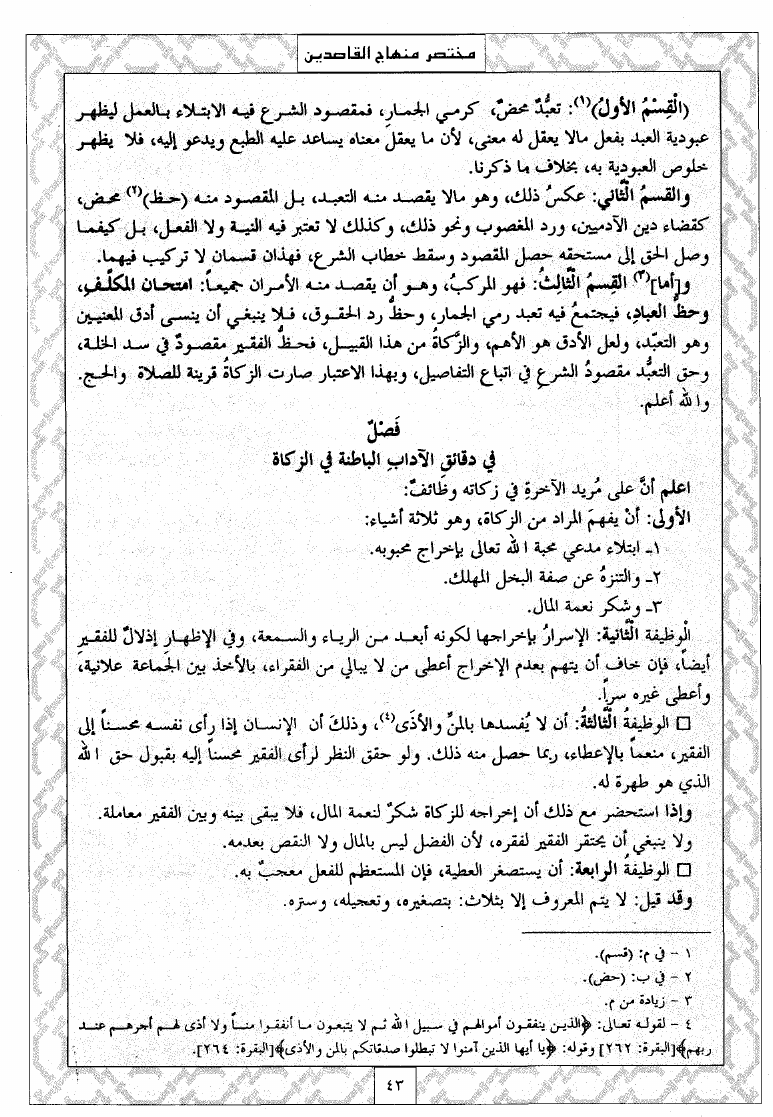 مختصر منهاج القاصدين
(الْقِسْمُ الأولُ)(١): تعبُّدٌ محضٌ، كرمي الجمارِ، فمقصود الشرع فيه الابتلاء بالعمل ليظهر
عبودية العبد بفعل مالا يعقل له معنى، لأن ما يعقل معناه يساعد عليه الطبع ويدعو إليه، فلا يظهر
خلوص العبودية به، بخلاف ما ذكرنا.
والقسمُ الثَّاني: عكسُ ذلك، وهو مالا يقصد منه التعبد، بل المقصود منه (حظ)(٢) محض،
كقضاء دين الآدميين، ورد المغصوب ونحو ذلك، وكذلك لا تعتبر فيه النية ولا الفعل، بل كيفما
وصل الحق إلى مستحقه حصل المقصود وسقط خطاب الشرع، فهذان قسمان لا تركيب فيهما.
و[أما](٣) القِسمُ الثَّالثُ: فهو المركبُ، وهو أن يقصد منه الأمران جميعاً: امتحان المكلَّفِ،
وحظُّ العبادِ، فيجتمعُ فيه تعبد رمي الجمار، وحظُّ رد الحقوق، فلا ينبغي أن ينسى أدق المعنيين
وهو التعبّد، ولعل الأدق هو الأهم، والزَّكاةُ من هذا القبيل، فحظُّ الفقير مقصودٌ في سد الخلة،
وحق التعبُّد مقصودُ الشرعِ في اتباع التفاصيل، وبهذا الاعتبار صارت الزكاةُ قرينة للصلاة والحج.
والله أعلم.
فَصْلٌ
في دقائقِ الآدابِ الباطنة في الزكاة
اعلم أنَّ على مُريد الآخرةِ في زكاته وظائفٌ:
الأولى: أنْ يفهمَ المراد من الزكاة، وهو ثلاثة أشياء:
١ـ ابتلاء مدعي محبة الله تعالى بإخراج محبوبه.
٢ـ والتنزهُ عن صفة البخل المهلك.
٣ـ وشكر نعمة المال.
الْوظيفة الثَّانية: الإسرارُ بإخراجها لكونه أبعد من الرياء والسمعة، وفي الإظهارِ إذلالٌ للفقيرِ
أيضاً، فإن خاف أن يتهم بعدم الإخراج أعطى من لا يبالي من الفقراء، بالأخذ بين الجماعة علانية،
وأعطى غيره سراً.
□ الوظيفةُ الثَّالثةُ: أن لا يُفسدها بالمنِّ والأذَى(٤)، وذلكَ أن الإنسان إذا رأى نفسه محسناً إلى
الفقير، منعماً بالإعطاء، ربما حصل منه ذلك. ولو حقق النظر لرأى الفقير محسناً إليه بقبول حق الله
الذي هو طهرة له.
وإذا استحضر مع ذلك أن إخراجه للزكاة شكرٌ لنعمة المال، فلا يبقى بينه وبين الفقير معاملة.
ولا ينبغي أن يحتقر الفقير لفقره، لأن الفضل ليس بالمال ولا النقص بعدمه.
□ الوظيفةُ الرابعة: أن يستصغر العطية، فإن المستعظم للفعل معجبٌ به.
وقد قيل: لا يتم المعروف إلا بثلاث: بتصغيره، وتعجيله، وستره.
١ - في م: (قسم).
٢ - في ب: (حض).
٣ - زيادة من م.
٤ - لقوله تعالى: ﴿الذين ينفقون أموالهم في سبيل الله ثم لا يتبعون ما أنفقوا مناً ولا أذى لهم أجرهم عند
ربهم﴾[البقرة: ٢٦٢] وقوله: ﴿يا أيها الذين آمنوا لا تبطلوا صدقاتكم بالمن والأذى﴾[البقرة: ٢٦٤].
٤٣